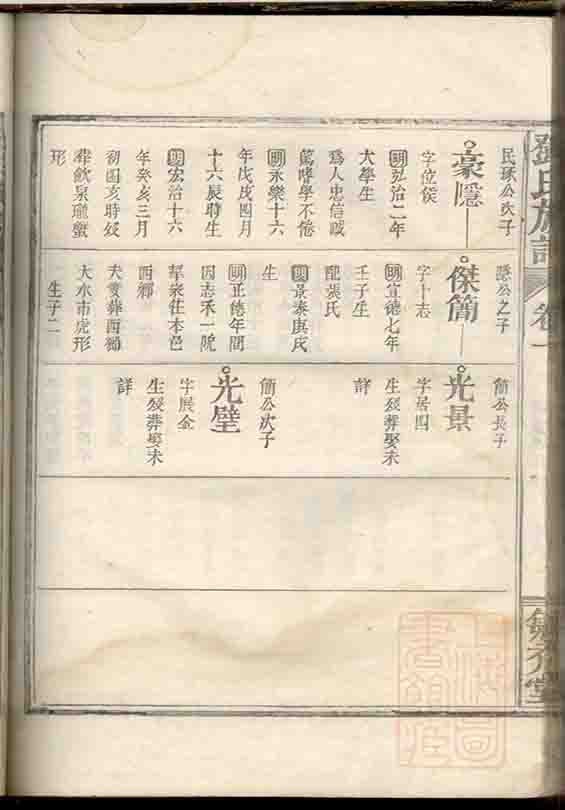 民琢公次子
豪隱
字位矦
明弘治二年
大學生
爲人忠信誠
篤嗜學不倦
明永樂十六
年戊戌四月
十六辰時生
明宏治十六
年癸亥三月
初四亥時歿
葬飮泉瓏蟹
形
隱公之子
傑簡
字十志
明宣德七年
壬子生
配張氏
明景泰庚戌
生
明正德年間
因志禾一院
挈家仕本邑
西鄉
夫妻葬西
大水市虎形
生子二
簡公長子
光景
字居四
生歿葬娶未
詳
簡公次子
光壁
字展金
生歿葬娶未
詳
鄧氏族譜
卷一
堂
上海圖
書館